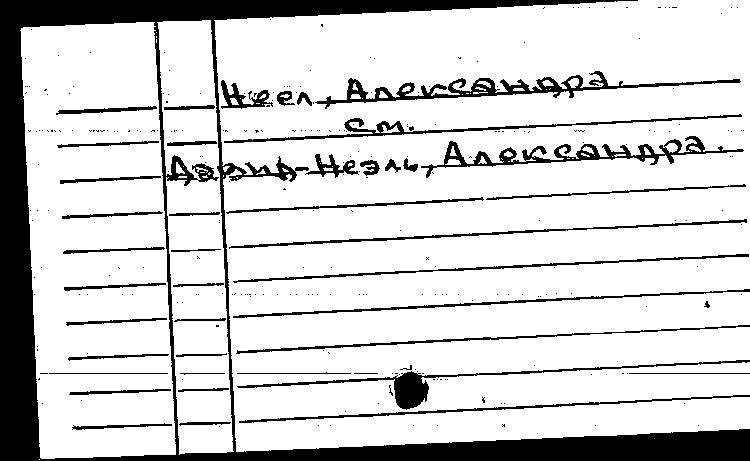 Неел, Александра.
см.
Давид-Неэль, Александра.